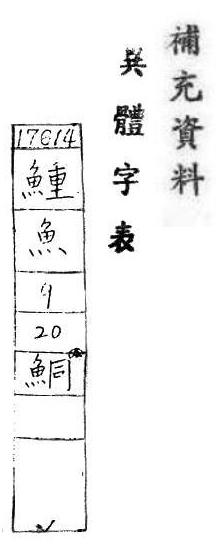 補充資料
異體字表
17614
鯶
魚
9
20
鮦